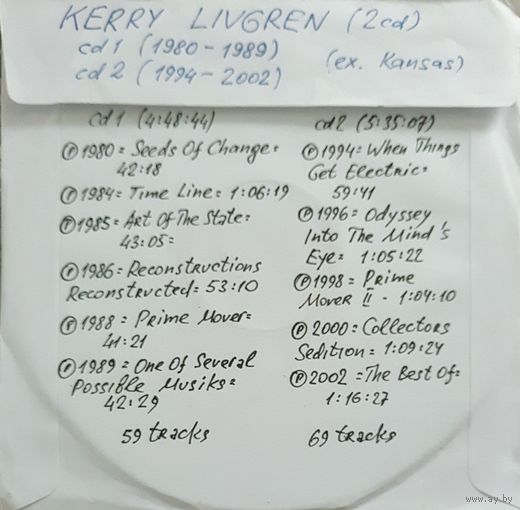 KERRY LIVGREN (2cd)
cd1 (1980-1989)
cd2 (1994-2002)
(ex. Kansas)
cd1 (4:48:44)
Ⓟ1980= Seeds Of Change=
42:18
Ⓟ1984= Time Line= 1:06:19
Ⓟ1985= Art Of The State=
43:05=
Ⓟ1986= Reconstructions
Reconstructed= 53:10
Ⓟ1988= Prime Mover=
41:21
Ⓟ1989= One Of Several
Possible Musiks=
42:29
59 tracks
cd2 (5:35:07)
Ⓟ1994= When Things
Get Electric=
59:41
Ⓟ1996= Odyssey
Into The Mind's
Eye= 1:05:22
Ⓟ1998= Prime
Mover II - 1:04:10
Ⓟ2000= Collectors
Sedition= 1:09:24
Ⓟ2002 =The Best Of=
1:16:27
69 tracks
www.ay.by